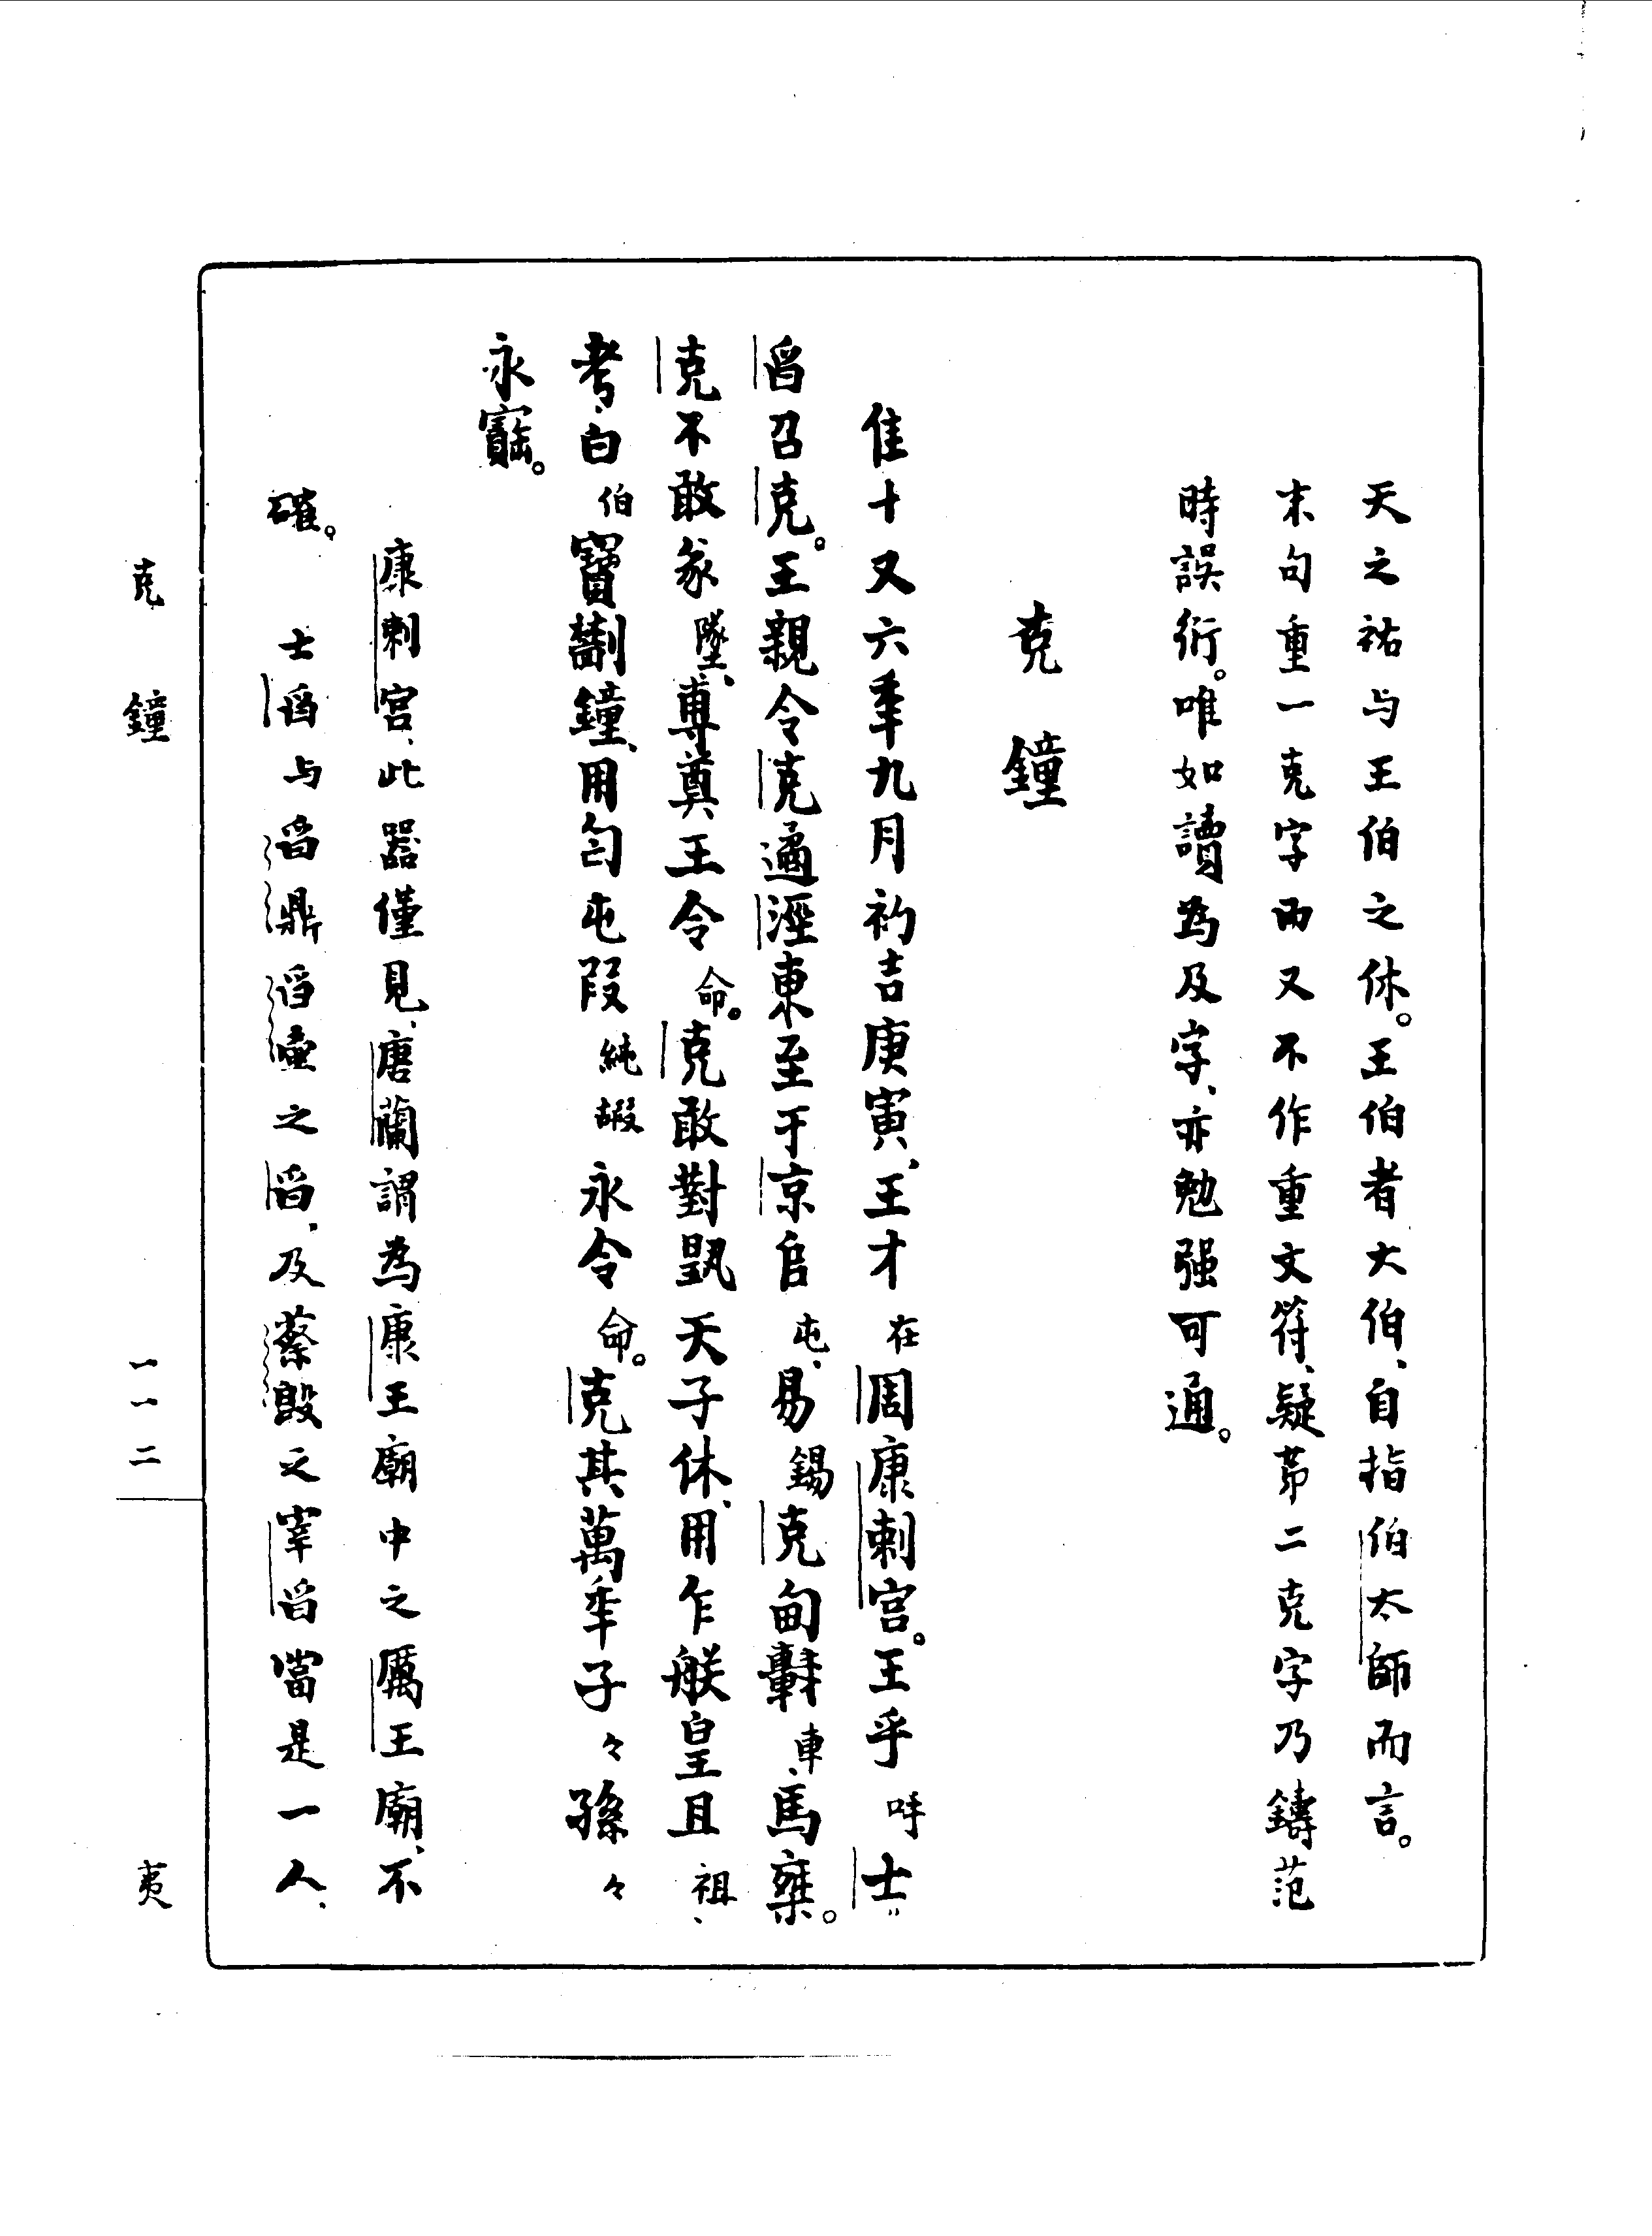 天之祐与王伯之休。王伯者大伯、自指伯太師而言。
末句重一克字而又不作重文符、疑苐二克字乃鑄范
時誤衍。唯如讀為及字、亦勉强可通。
克鐘
隹十又六年九月初吉庚寅、王才在周康剌宫。王乎呼士
曶召克。王親令克遹涇東至于京𠂤屯、易錫克甸車馬椉。
克不敢㒸墜、尃奠王令命。克敢對𩁹天子休、用乍朕皇且祖、
考、白伯寶劃鐘、用匄屯叚純嘏永令命。克其萬年子々孫々
永寶。
康剌宫、此器僅見、唐蘭謂為康王廟中之厲王廟、不
確。士曶与曶鼎曶壷之曶、及蔡𣪘之宰曶當是一人、
克鐘
一一二
夷